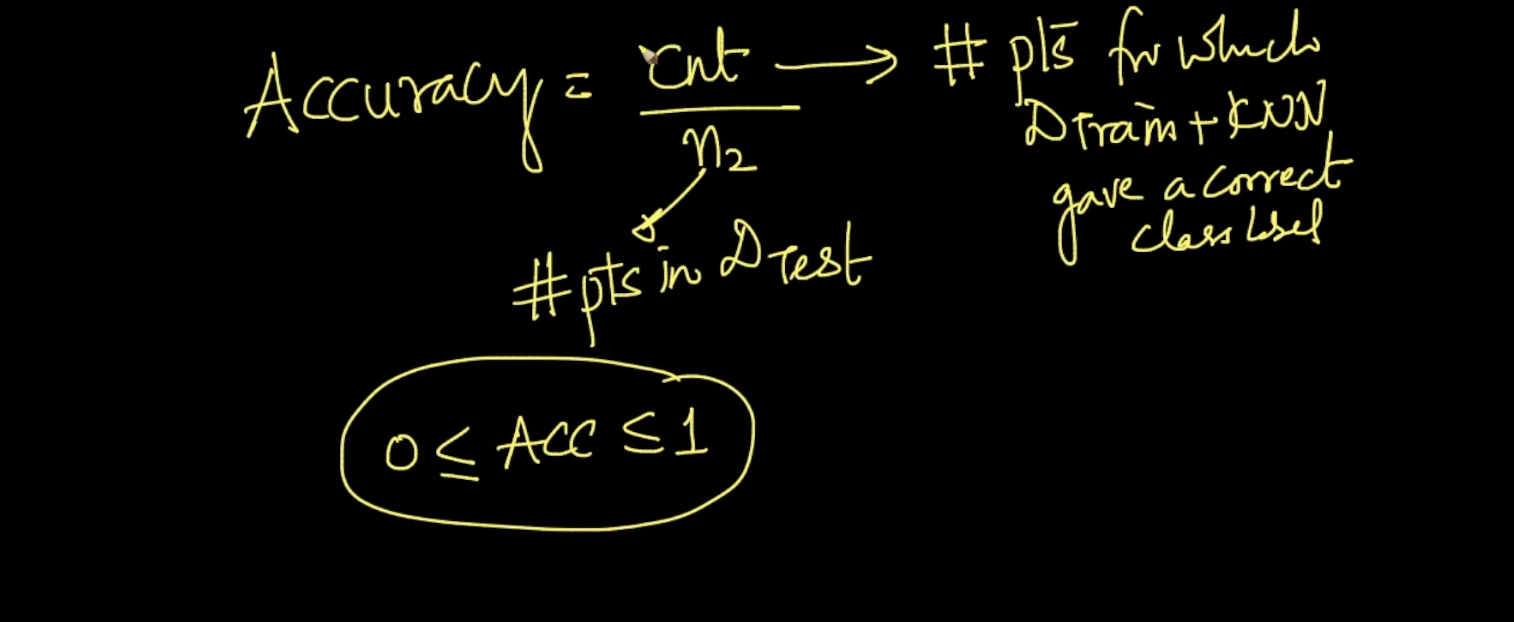 Accuracy = cnt / n2 → # pts for which
DTrain + KNN
gave a correct
class label
# pts in DTest
0 ≤ ACC ≤ 1